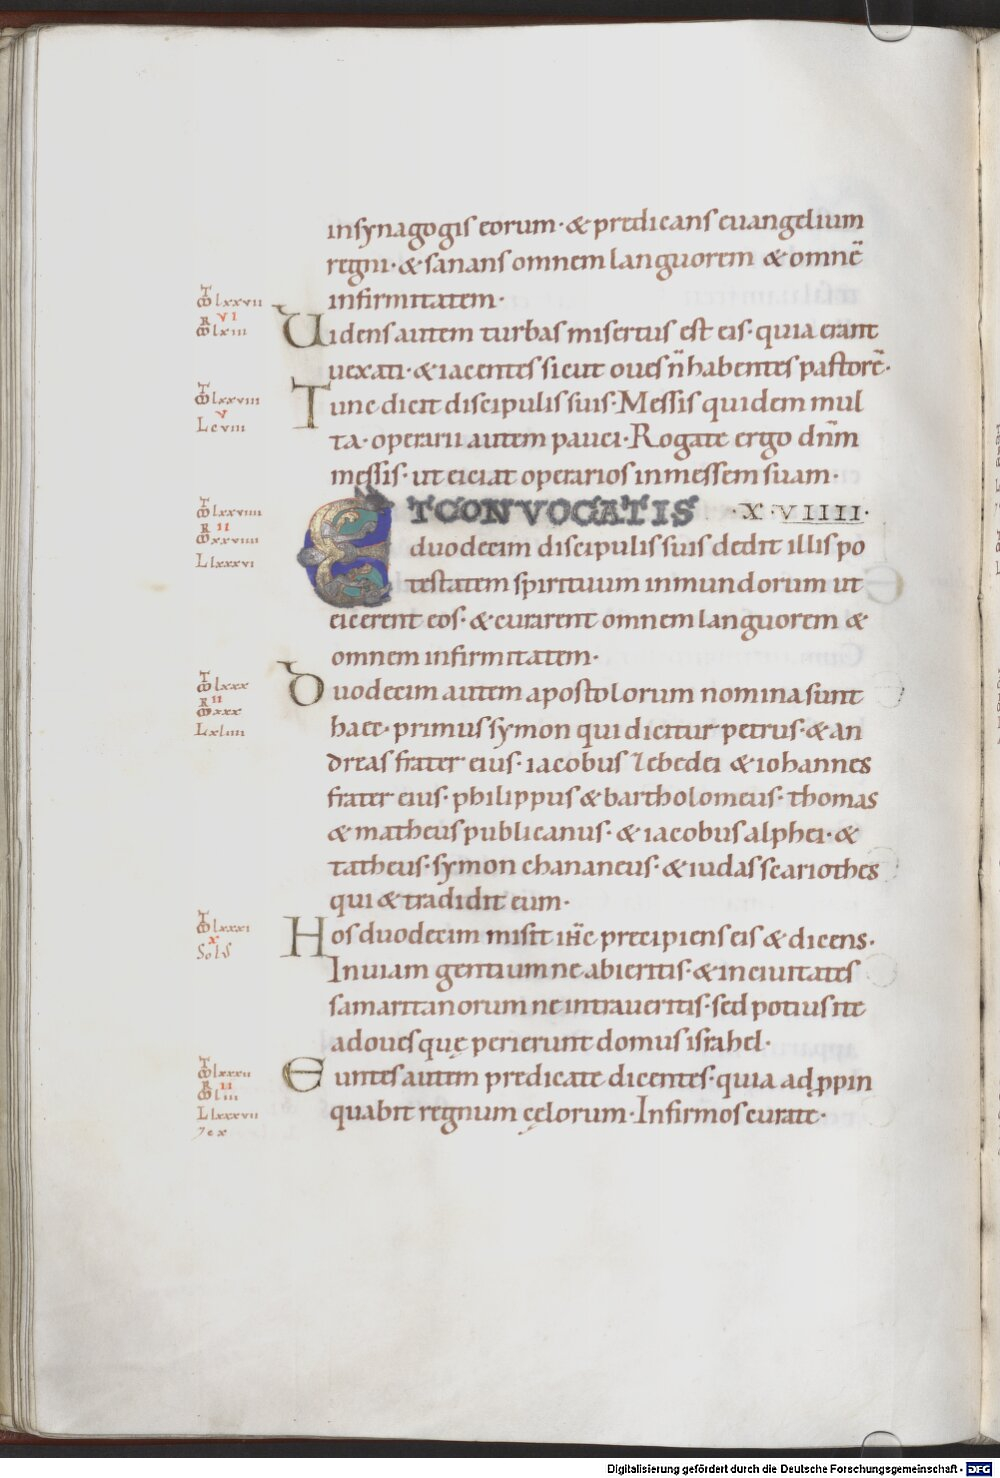 insynagogis eorum· & predicans euangelium
regni· & sanans omnem languorem & omnē
infirmitatem·
Uidens autem turbas misertus est eis· quia erant
uexati· & iacentes sicut oues n̄ habentes pastorē·
Tunc dicit discipulis suis· Messis quidem mul
ta· operarii autem pauci· Rogate ergo dn̄m
messis· ut eiciat operarios in messem suam·
ET CONVOCATIS ·XVIIII·
duodecim discipulis suis dedit illis po
testatem spirituum inmundorum ut
eicerent eos· & curarent omnem languorem &
omnem infirmitatem·
Duodecim autem apostolorum nomina sunt
haec· primus symon qui dicitur petrus· & an
dreas frater eius· iacobus zebedei & iohannes
frater eius· philippus & bartholomeus· thomas
& matheus publicanus· & iacobus alphei· &
tatheus· symon chananeus· & iudas scariothes
qui & tradidit eum·
Hos duodecim misit ih̄c precipiens eis & dicens·
In uiam gentium ne abieritis· & in ciuitates
samaritanorum ne intraueritis· sed potius ite
ad oues quę perierunt domus israhel·
Euntes autem predicate dicentes· quia adp̱pin
quabit regnum cęlorum· Infirmos curate·
lxxvii
VI
lxiii
lxxviii
V
L cviii
lxxviiii
II
xxviiii
L lxxxvi
lxxx
II
xxx
L xliiii
lxxxi
X
Sols
lxxxii
II
liii
L lxxxvii
Digitalisierung gefördert durch die Deutsche Forschungsgemeinschaft - DFG